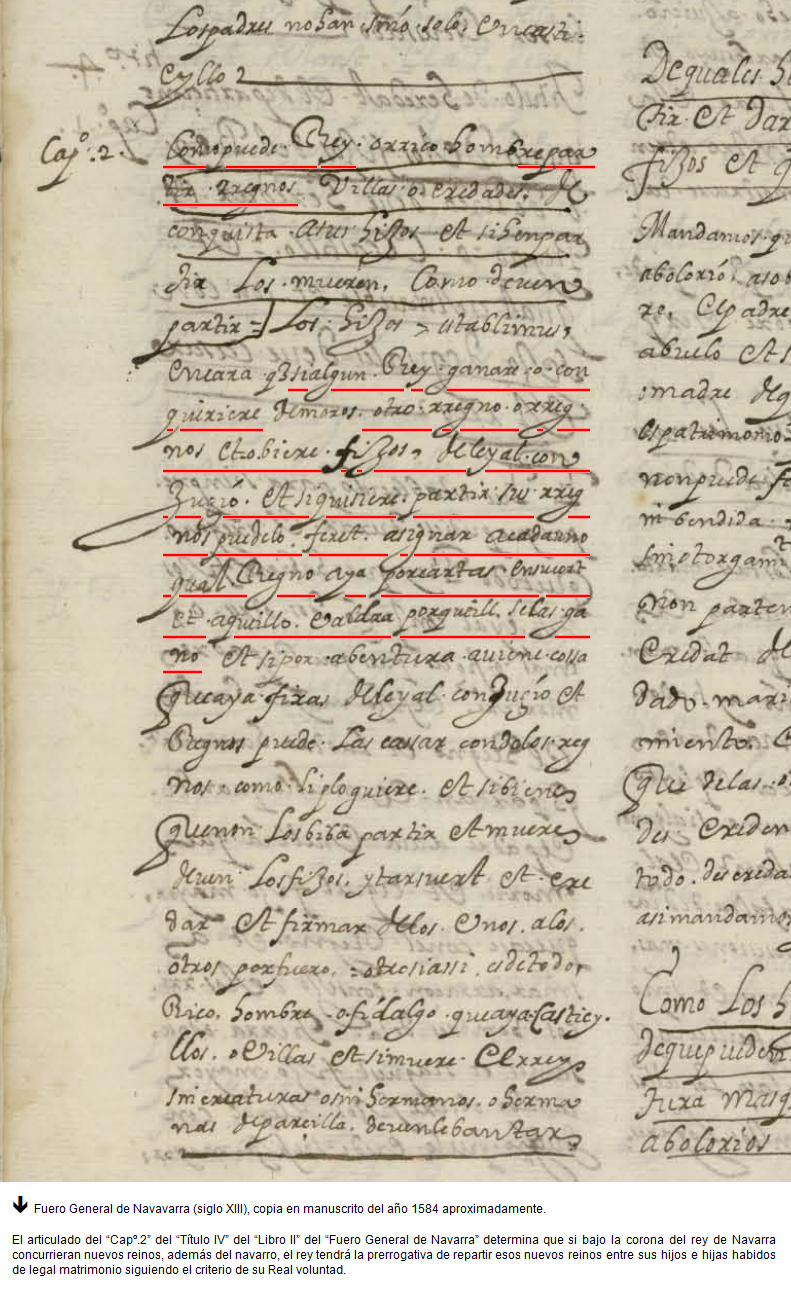 Los padres no han sino solo en casti
eyllo 2
Capº. 2.
Como puede Rey o rrico hombre par
tir rregnos Villas o eredades, de
conquista a sus hizos et si henpar
tir Los mueren, Como deuen
partir = Los hizos establimus,
encara q̃ si algun Rey ganare o con
quiriere de moros otro rregno o rreg
nos et obiere fizos, de leyal con
Juçio. et si quisiere partir sus rreg
nos puedelo fer et asignar a cada uno
qual Regno aya por cartas en su cort
et aquillo. Valdra porque ill se las ga
no et si por abentura auiene cossa
que aya fixas de leyal conJuçio et
Regnos puede Las cassar con dolos reg
nos como li ploguiere. et si biene
que non Los biba partir et muere
deuen Los fizos, ytar suert et ere
dar et firmar de los Unos a los
otros por fuero = otrosi assi es de todo
Rico hombre o fidalgo que aya Castiey.
llos. o Villas et si muere El rrey
sin creaturas o sin hermanos o herma
nas de pareilla. deuen lebantar
De quales h
tir et dar
fizos et q
Mandamos q
abolorio, a so
re. El padre
abuelo et s
madre deq
es patrimonio
non puede f
ni bendida
sin otorgami
non parten
Eredat de
dado mari
miento. E
que de las o
des Ereden
todo. des ereda
asi mandamos
Como Los h
de que pueden
Jura mas q
abolorios
Fuero General de Navavarra (siglo XIII), copia en manuscrito del año 1584 aproximadamente.
El articulado del “Capº.2” del “Título IV” del “Libro II” del “Fuero General de Navarra” determina que si bajo la corona del rey de Navarra
concurrieran nuevos reinos, además del navarro, el rey tendrá la prerrogativa de repartir esos nuevos reinos entre sus hijos e hijas habidos
de legal matrimonio siguiendo el criterio de su Real voluntad.